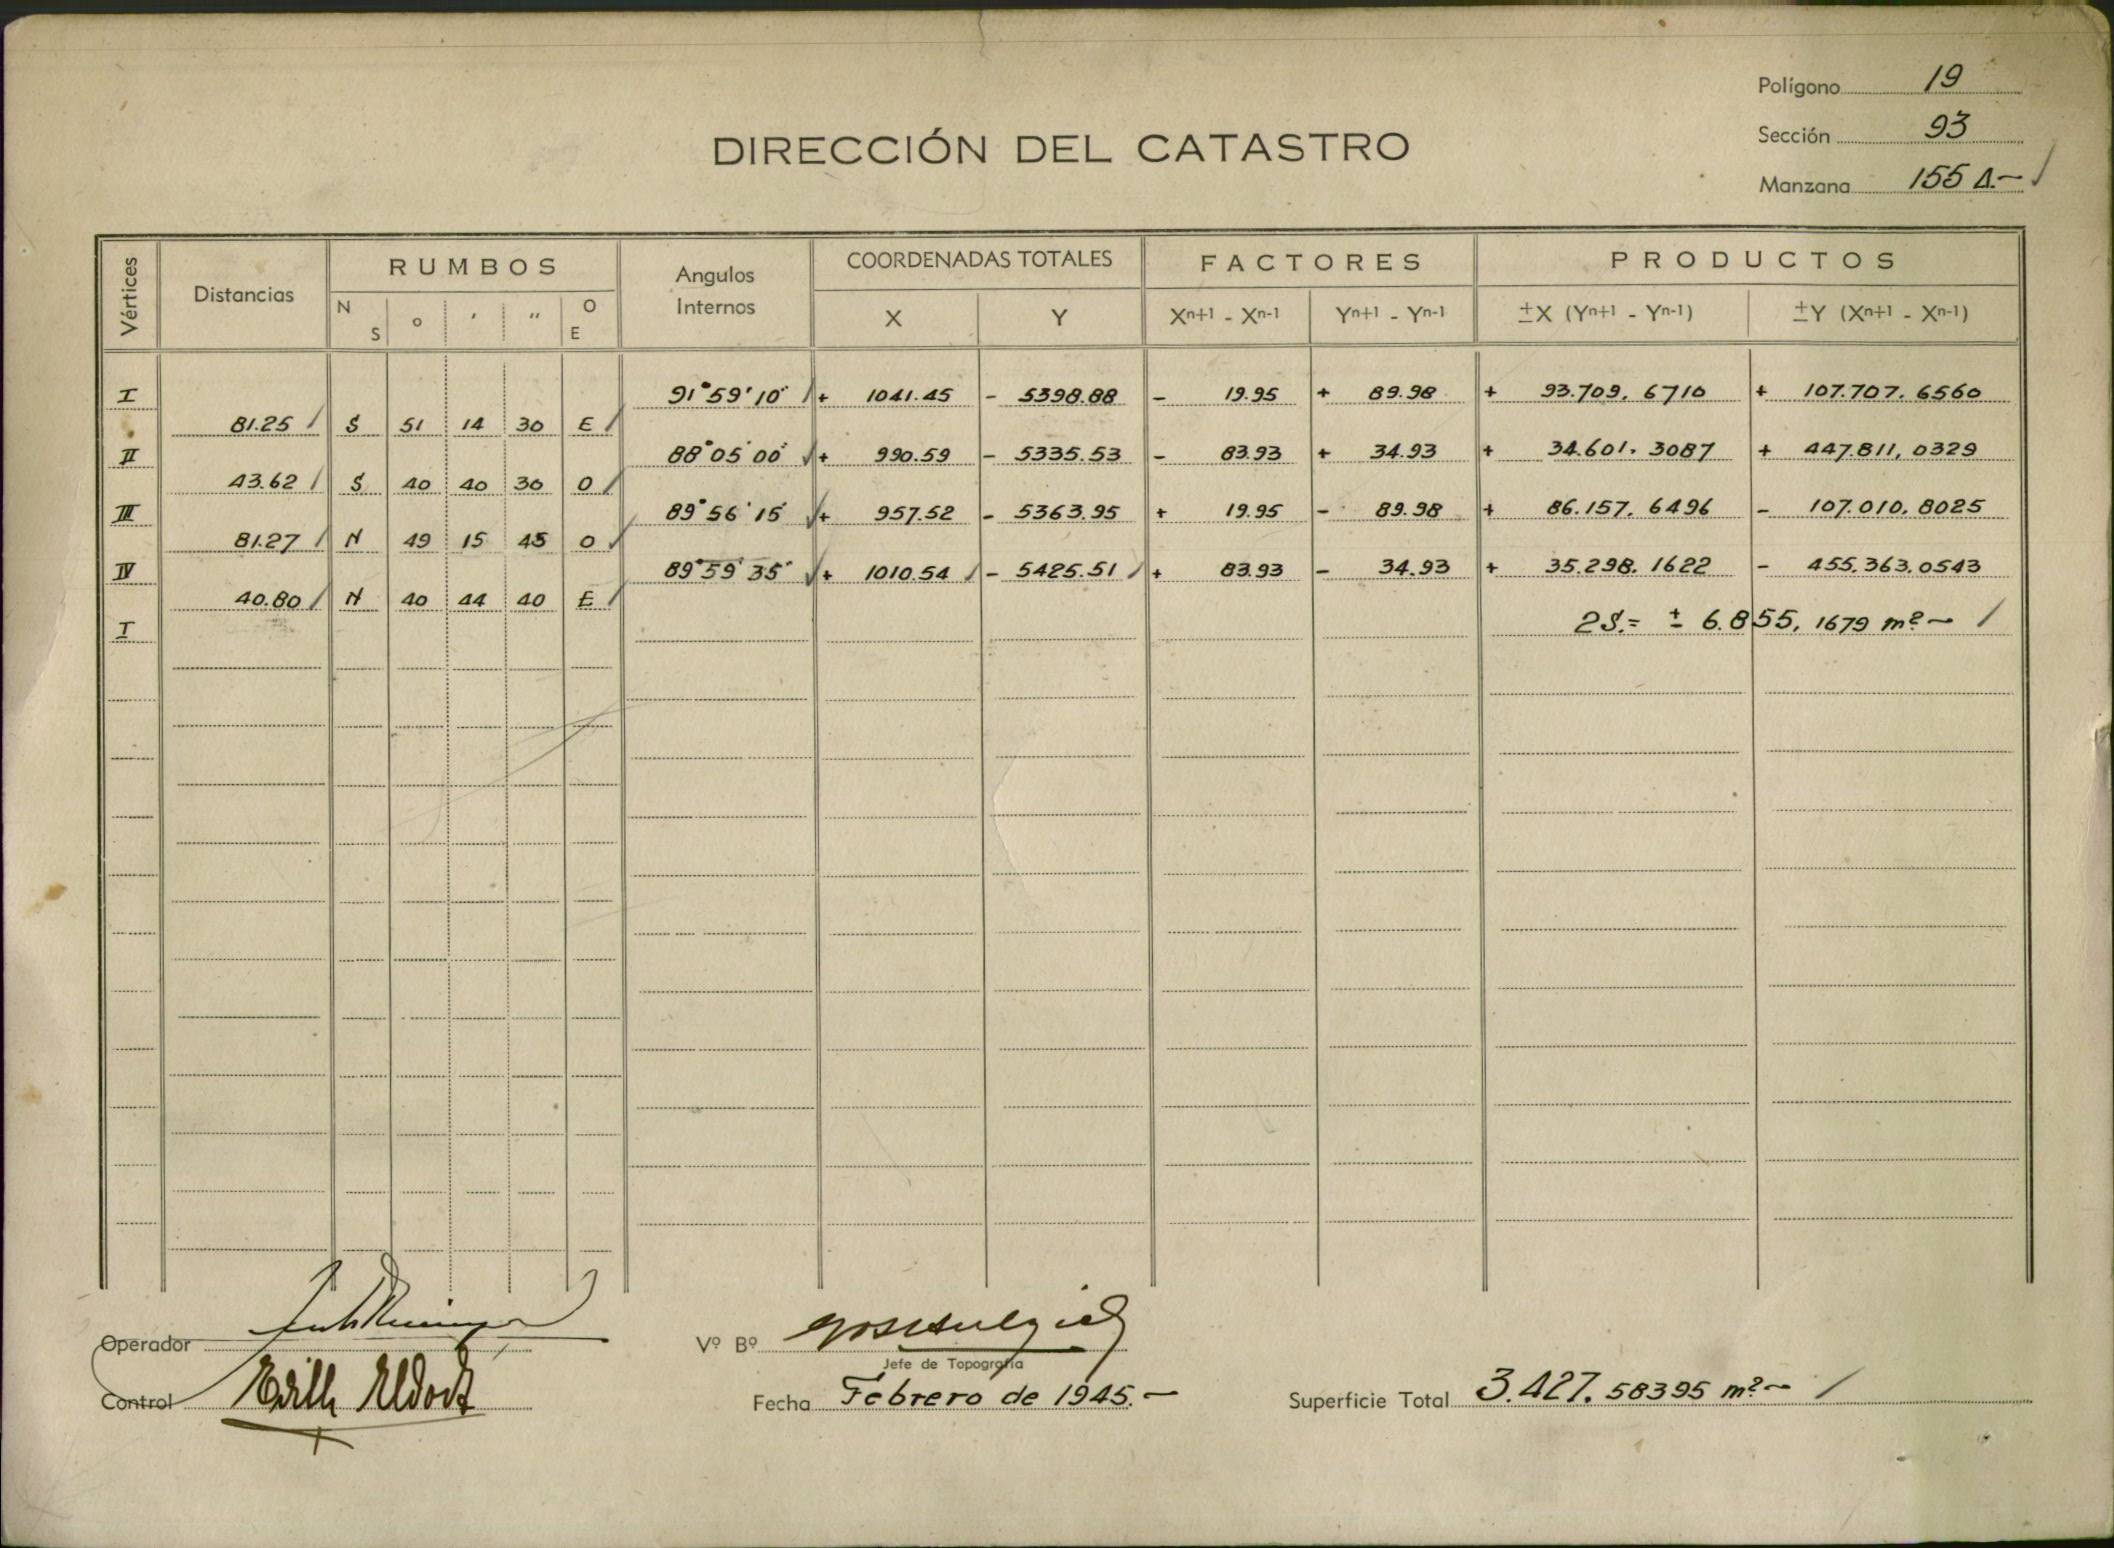 Polígono 19
Sección 93
DIRECCIÓN DEL CATASTRO
Manzana 155 A.-
Vértices Distancias RUMBOS Angulos Internos COORDENADAS TOTALES FACTORES PRODUCTOS
N S o ′ ″ O E X Y Xn+1 - Xn-1 Yn+1 - Yn-1 ±X (Yn+1 - Yn-1) ±Y (Xn+1 - Xn-1)
I 91°59'10" + 1041.45 - 5398.88 - 19.95 + 89.98 + 93.709,6710 + 107.707.6560
81.25 S 51 14 30 E
II 88°05'00" + 990.59 - 5335.53 - 83.93 + 34.93 + 34.601.3087 + 447.811,0329
43.62 S 40 40 30 O
III 89°56'15" + 957.52 - 5363.95 + 19.95 - 89.98 + 86.157.6496 - 107.010.8025
81.27 N 49 15 45 O
IV 89°59'35" + 1010.54 - 5425.51 + 83.93 - 34.93 + 35.298.1622 - 455.363.0543
40.80 N 40 44 40 E
I 2S.= ± 6.855,1679 m²-
Operador
Vº Bº
Jefe de Topografía
Control
Fecha Febrero de 1945.-
Superficie Total 3.427.58395 m²-